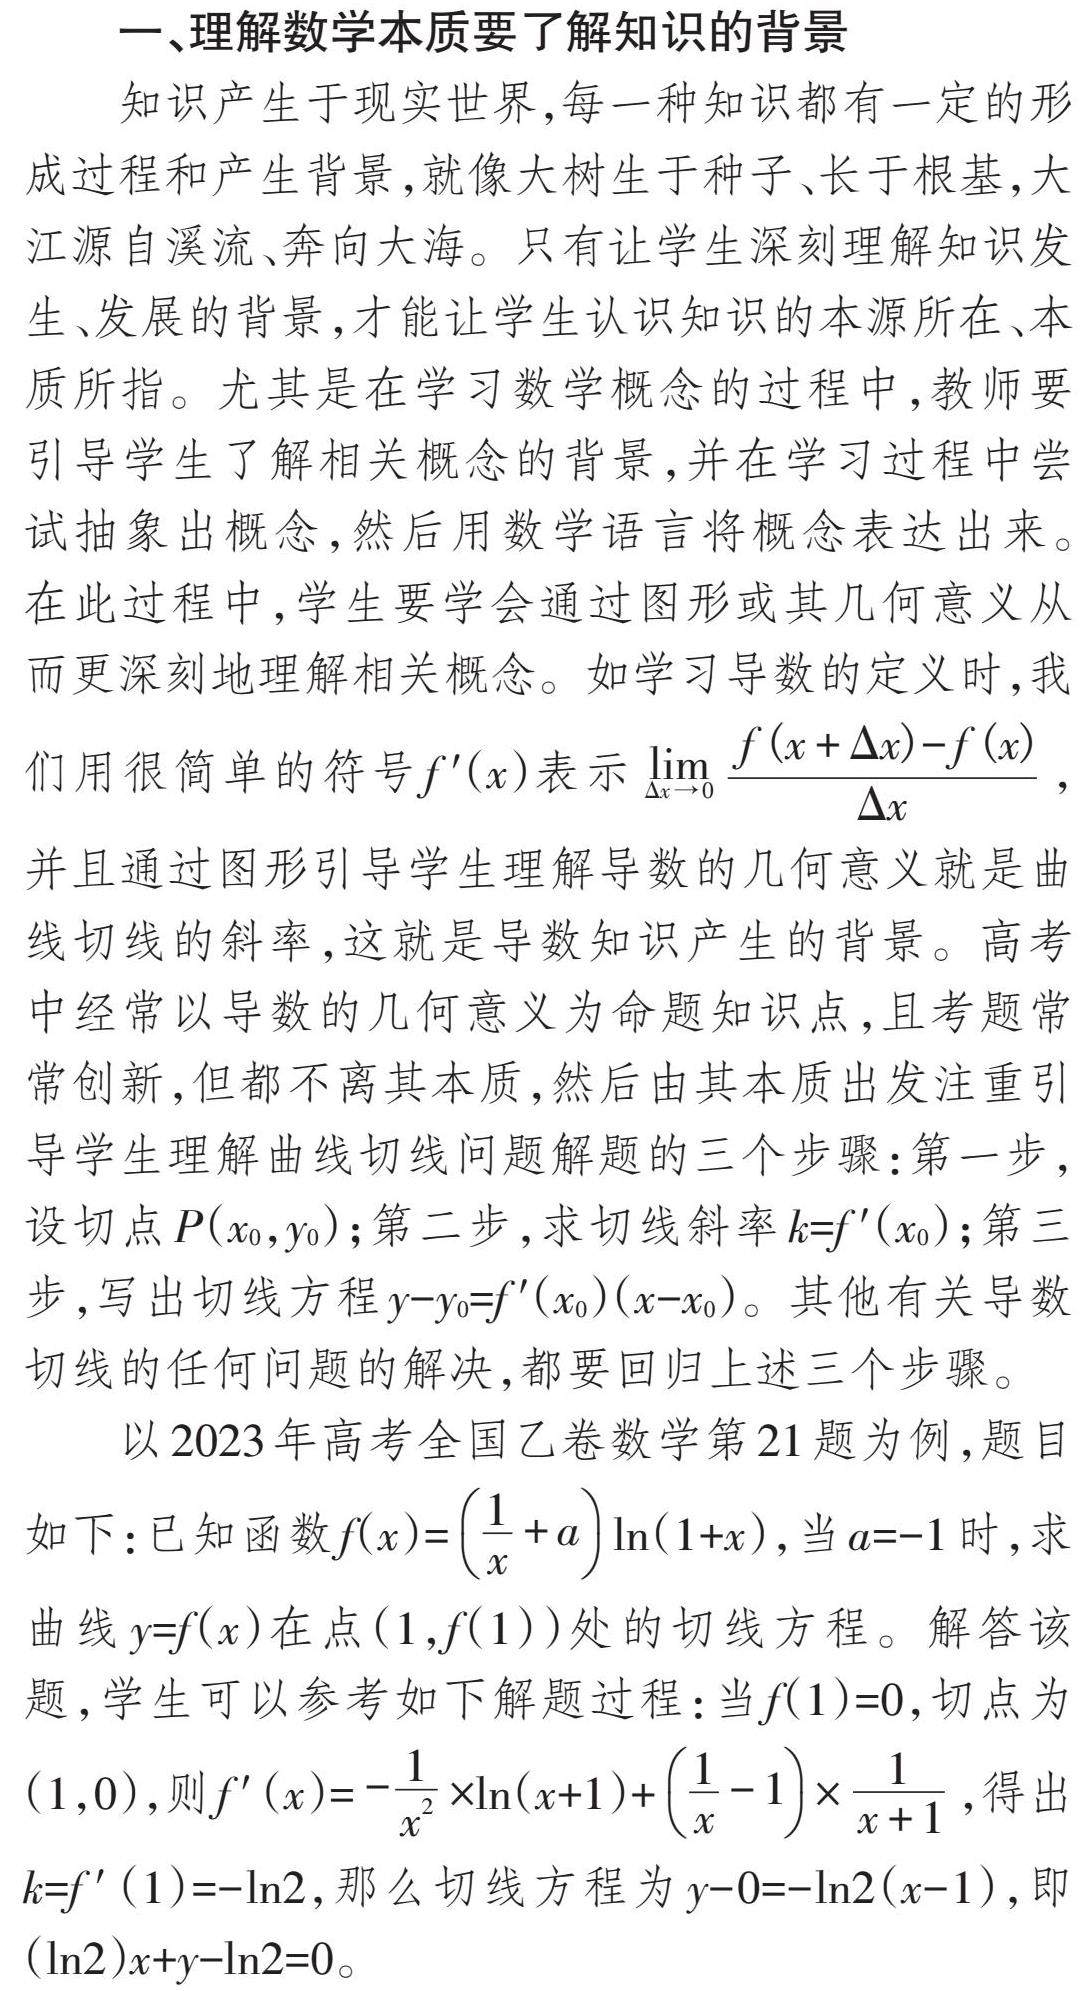 一、理解数学本质要了解知识的背景
知识产生于现实世界,每一种知识都有一定的形
成过程和产生背景,就像大树生于种子、长于根基,大
江源自溪流、奔向大海。只有让学生深刻理解知识发
生、发展的背景,才能让学生认识知识的本源所在、本
质所指。尤其是在学习数学概念的过程中,教师要
引导学生了解相关概念的背景,并在学习过程中尝
试抽象出概念,然后用数学语言将概念表达出来。
在此过程中,学生要学会通过图形或其几何意义从
而更深刻地理解相关概念。如学习导数的定义时,我
们用很简单的符号f′(x)表示 lim_{Δx→0} \frac{f(x+Δx)-f(x)}{Δx},
并且通过图形引导学生理解导数的几何意义就是曲
线切线的斜率,这就是导数知识产生的背景。高考
中经常以导数的几何意义为命题知识点,且考题常
常创新,但都不离其本质,然后由其本质出发注重引
导学生理解曲线切线问题解题的三个步骤:第一步,
设切点P(x₀,y₀);第二步,求切线斜率k=f′(x₀);第三
步,写出切线方程y-y₀=f′(x₀)(x-x₀)。其他有关导数
切线的任何问题的解决,都要回归上述三个步骤。
以2023年高考全国乙卷数学第21题为例,题目
如下:已知函数f(x)=(\frac{1}{x}+a)ln(1+x),当a=-1时,求
曲线y=f(x)在点(1,f(1))处的切线方程。解答该
题,学生可以参考如下解题过程:当f(1)=0,切点为
(1,0),则f′(x)=-\frac{1}{x²}×ln(x+1)+(\frac{1}{x}-1)×\frac{1}{x+1},得出
k=f′(1)=-ln2,那么切线方程为y-0=-ln2(x-1),即
(ln2)x+y-ln2=0。